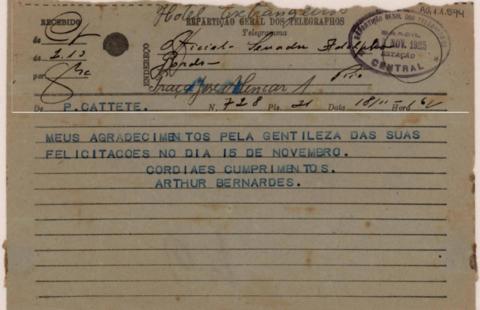 Hotel Extrangeiros
A9.1.1.594
RECEBIDO
REPARTIÇÃO GERAL DOS TELEGRAPHOS
Telegramma
de
ás 2.10
por
ENDEREÇO
Official Senador
Gordo
Praça José Alencar 1
Rio
REPARTIÇÃO GERAL DOS TELEGRAPHOS
NOV. 1925
ESTAÇÃO
CENTRAL
De P. CATTETE. N. 728 Pls. 21 Data 18/11 Hora
MEUS AGRADECIMENTOS PELA GENTILEZA DAS SUAS
FELICITACOES NO DIA 15 DE NOVEMBRO.
CORDIAES CUMPRIMENTOS.
ARTHUR BERNARDES.